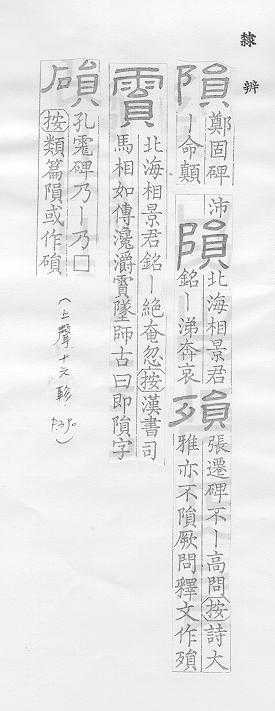 隸辨
隕鄭固碑丨命顛沛
隕北海相景君銘丨涕奔哀
殞張遷碑不丨高問按詩大雅亦不隕厥問釋文作殞
霣北海相景君銘丨絶奄忽按漢書司馬相如傳瀺灂霣墜師古曰即隕字
磒孔彪碑乃丨乃□按類篇隕或作磒
(上聲十六軫 P390)